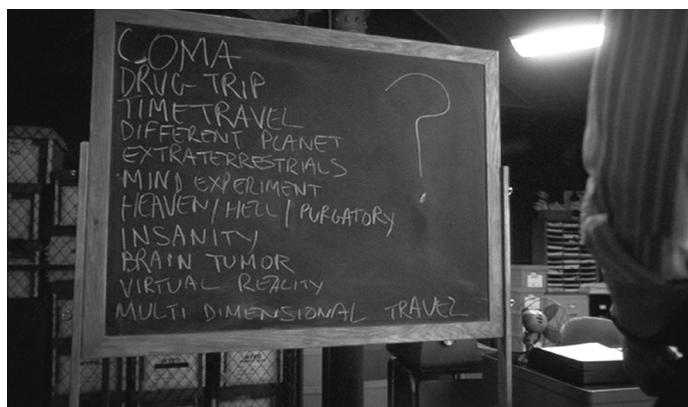 COMA
DRUG TRIP
TIME TRAVEL
DIFFERENT PLANET
EXTRATERRESTRIALS
MIND EXPERIMENT
HEAVEN/HELL/PURGATORY
INSANITY
BRAIN TUMOR
VIRTUAL REALITY
MULTI DIMENSIONAL TRAVEL
?